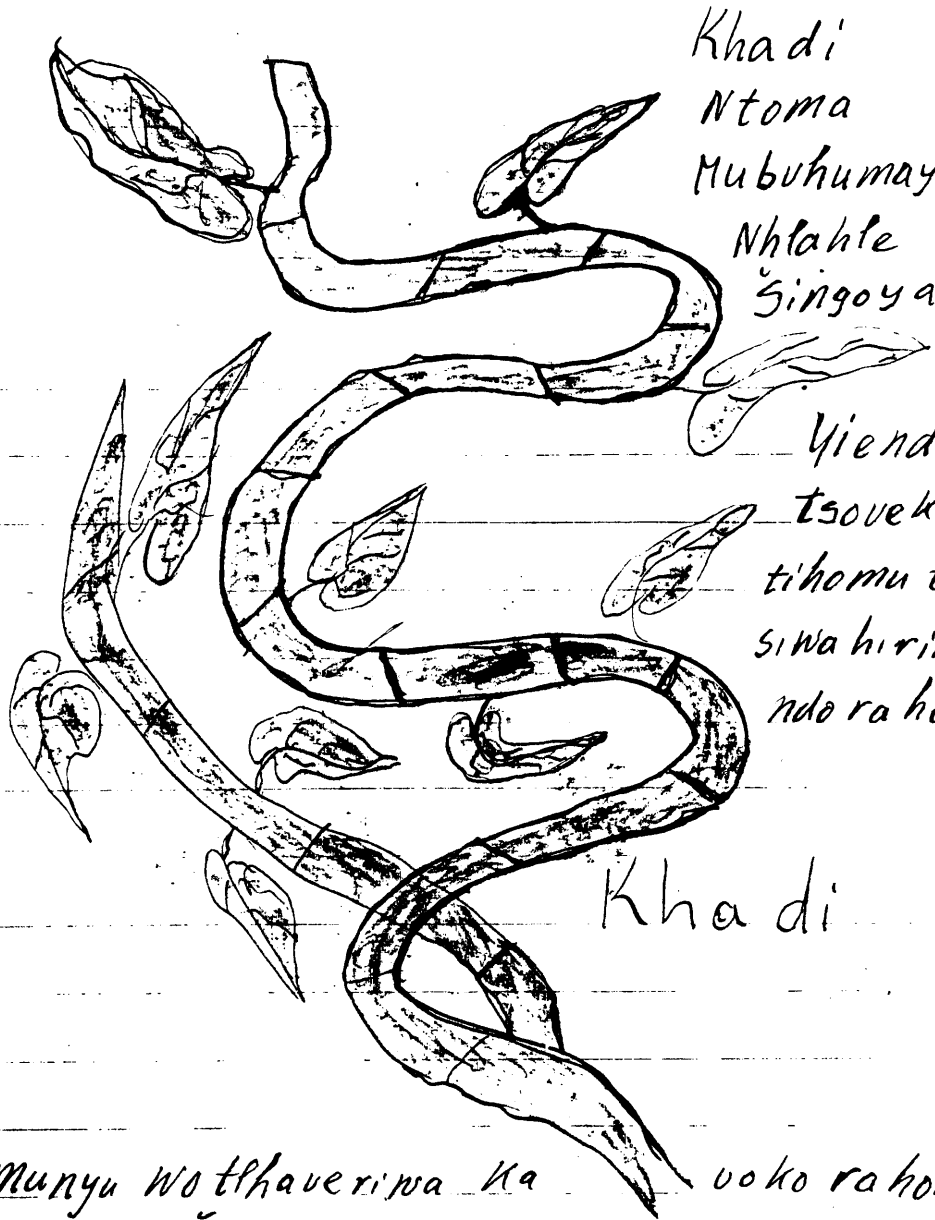 Khadi
Ntoma
Mubuhumay
Nhlahle
Šingoya
Yiend
tsovek
tihomu
siwahiri
ndoraho
Khadi
Munyu wotlhaveriwa ka voko raho